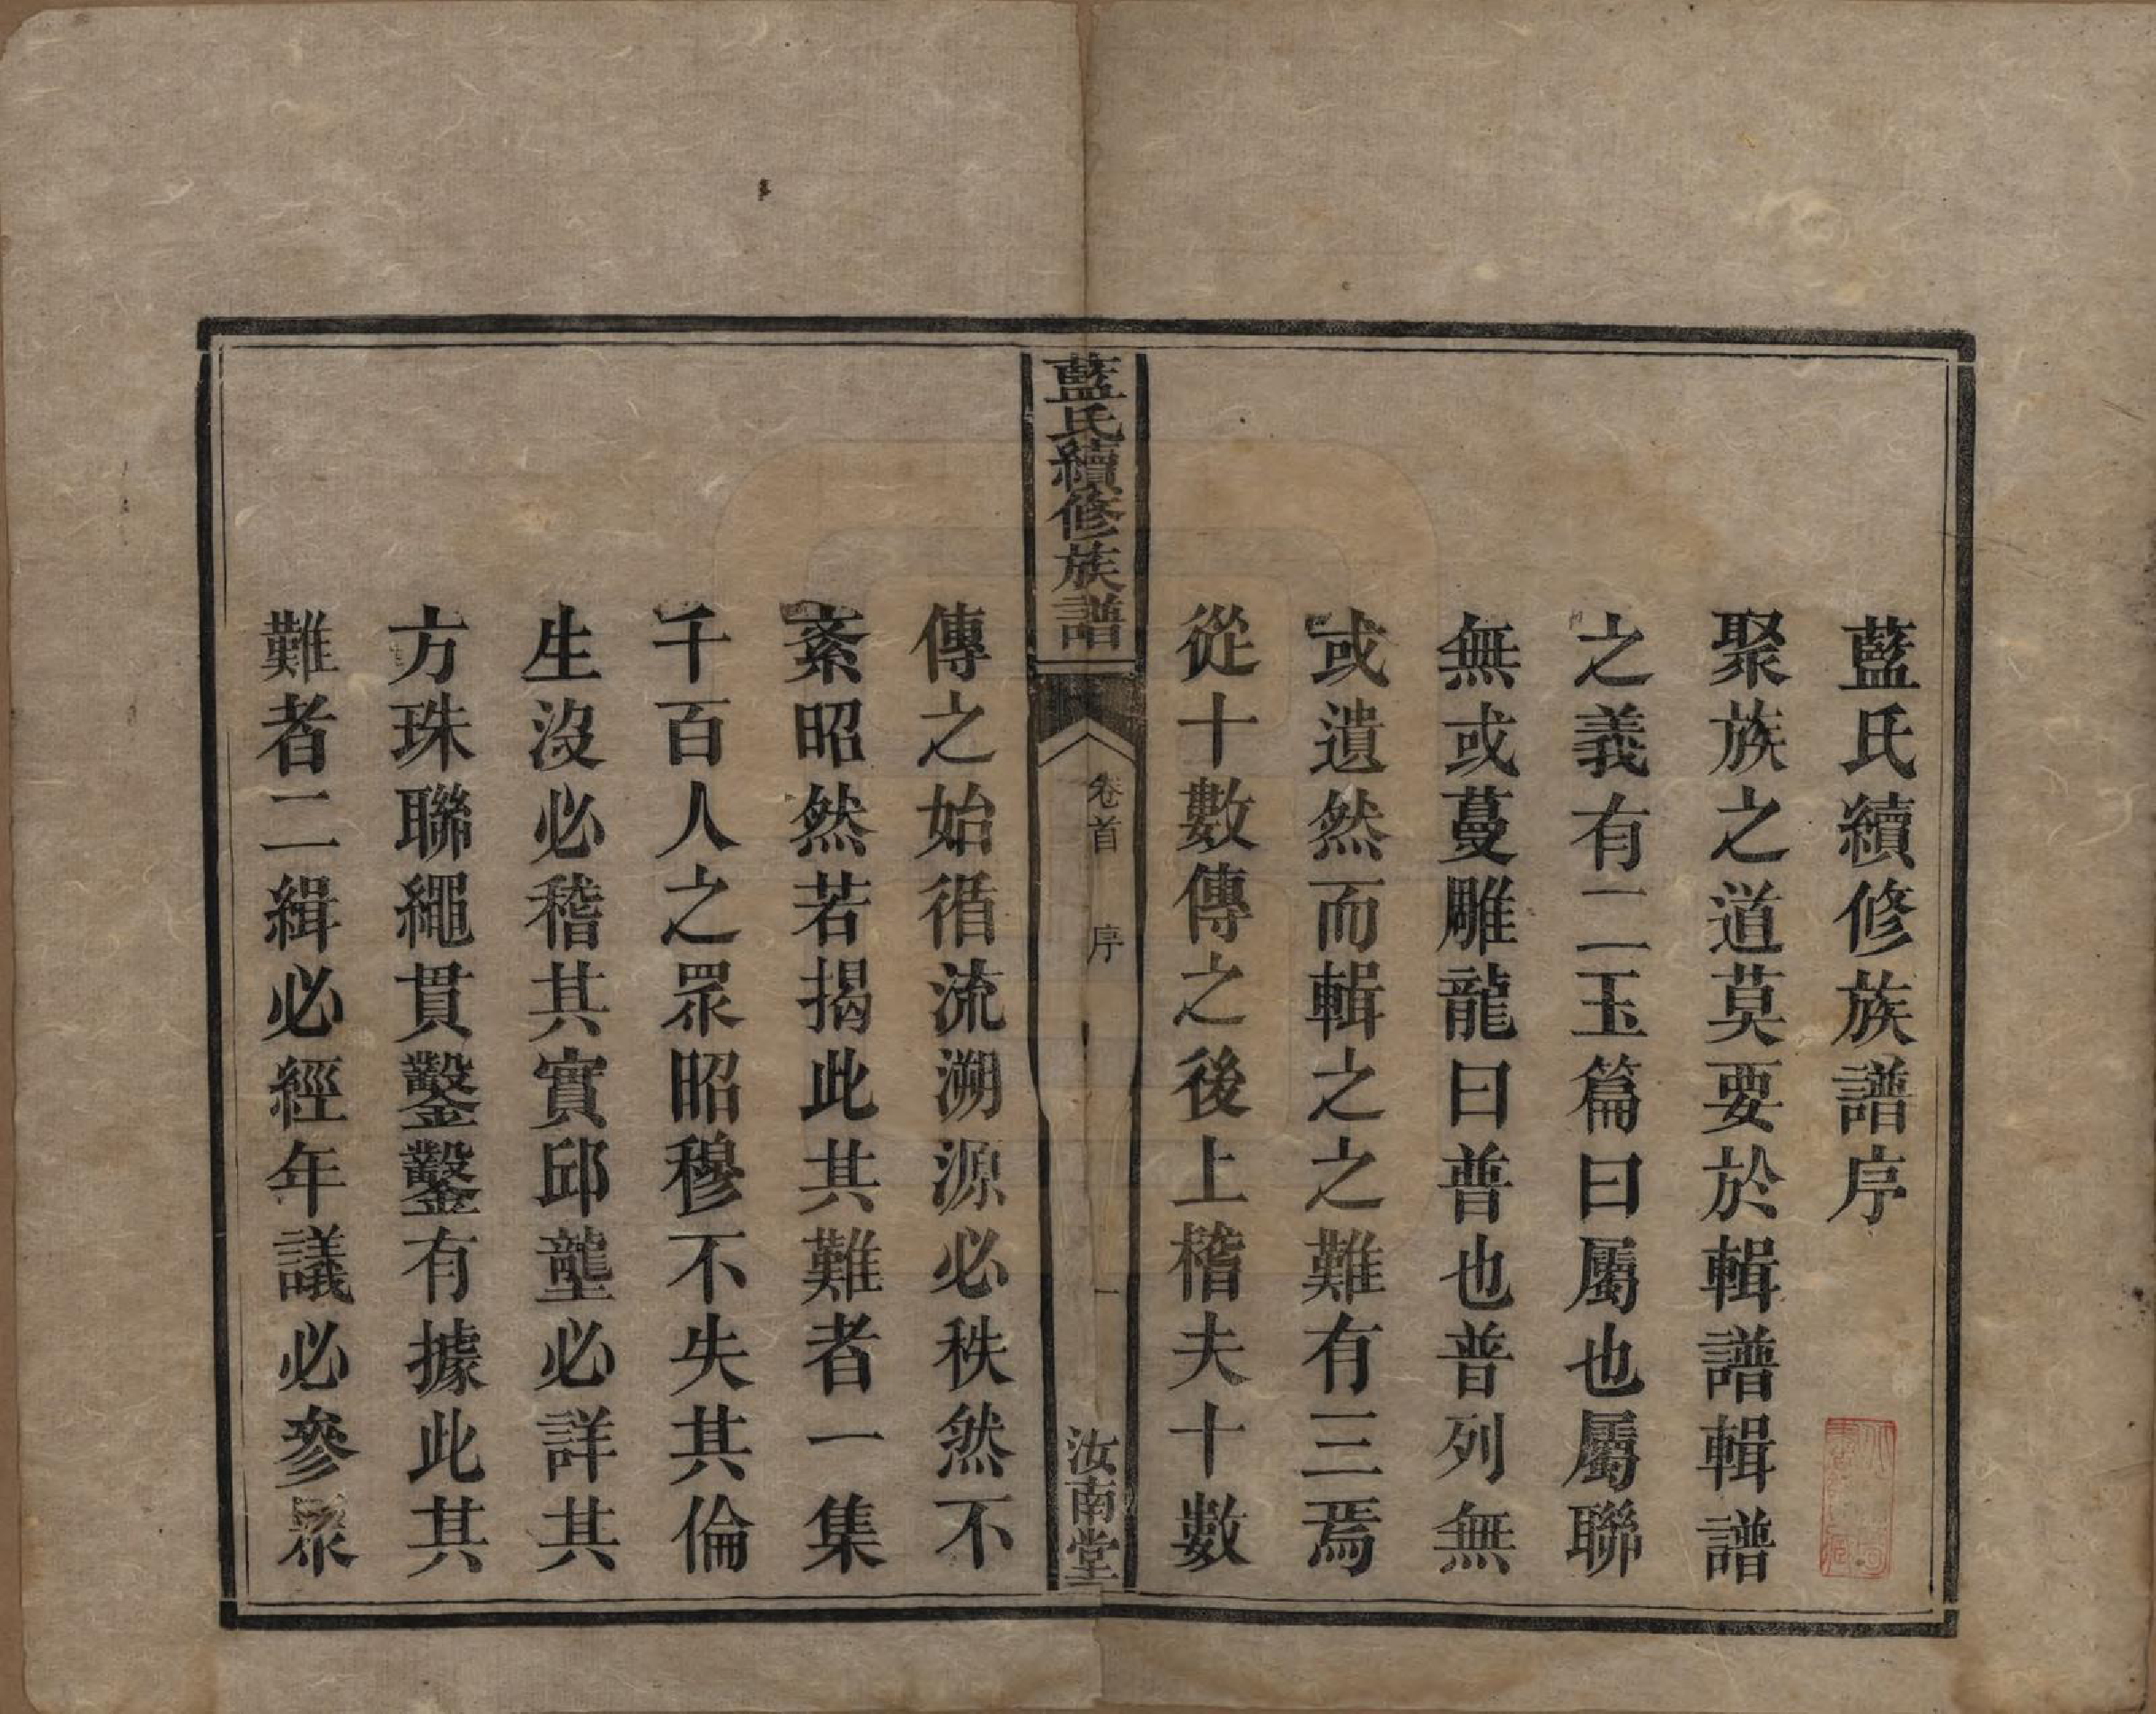 藍氏續修族譜序
聚族之道莫要於輯譜輯譜
之義有二玉篇曰屬也屬聯
無或蔓雕龍曰普也普列無
或遺然而輯之之難有三焉
從十數傳之後上稽夫十數
藍氏續修族譜
卷首
序
一
汝南堂
傳之始循流溯源必秩然不
紊昭然若揭此其難者一集
千百人之眾昭穆不失其倫
生沒必稽其實邱壟必詳其
方珠聯繩貫鑿鑿有據此其
難者二緝必經年議必參眾